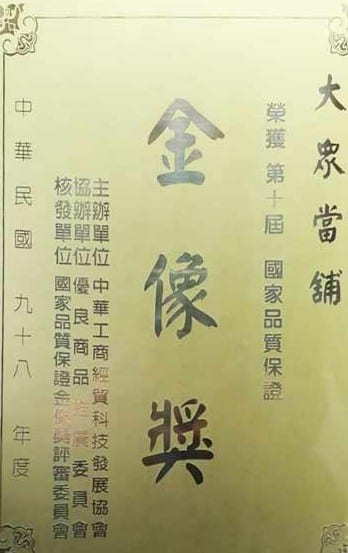 大眾當舖
榮獲 第十屆 國家品質保證
金像獎
主辦單位 中華工商經貿科技發展協會
協辦單位 優良商品推廣委員會
核發單位 國家品質保證金像獎評審委員會
中華民國 九十八 年度